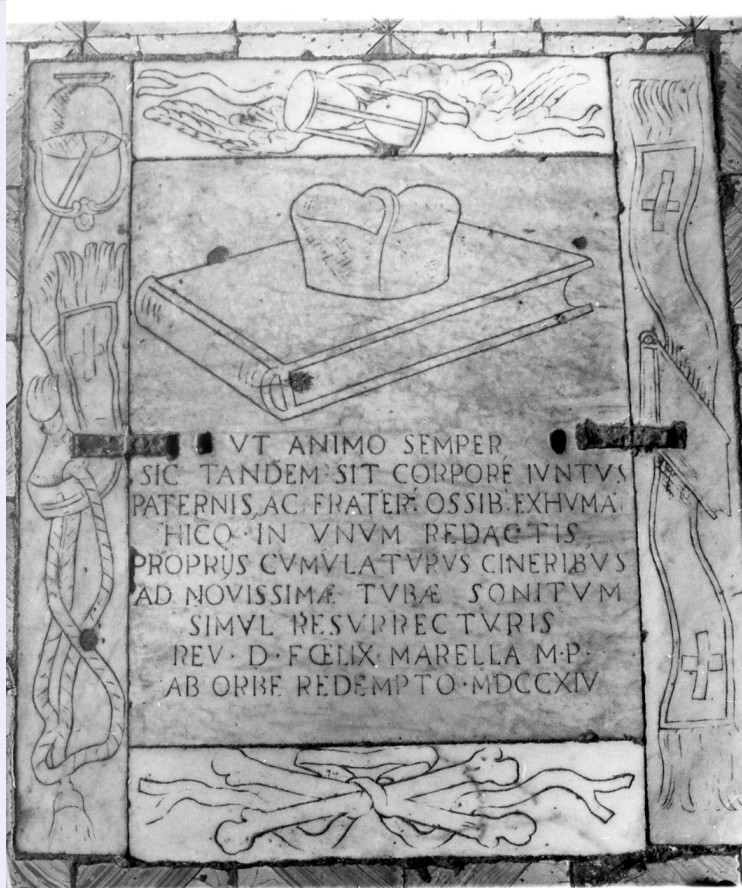 VT ANIMO SEMPER
SIC TANDEM SIT CORPORE IVNTVS
PATERNIS AC FRATER: OSSIB: EXHVMA:
HICQ· IN VNVM REDACTIS
PROPRIJS CVMVLATVRVS CINERIBVS
AD NOVISSIMÆ TVBÆ SONITVM
SIMVL RESVRRECTVRIS
REV· D· FŒLIX MARELLA M·P·
AB ORBE REDEMPTO·MDCCXIV